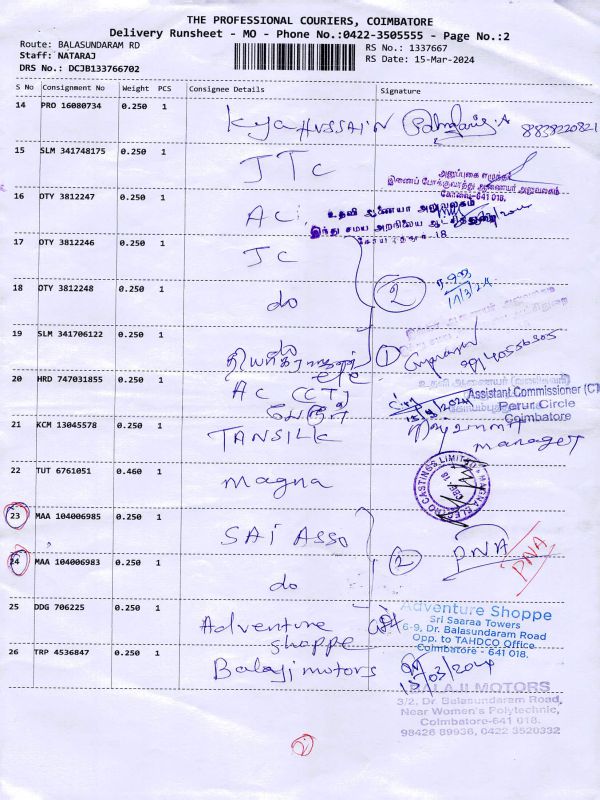 THE PROFESSIONAL COURIERS, COIMBATORE
Delivery Runsheet - MO - Phone No.:0422-3505555 - Page No.:2
Route: BALASUNDARAM RD
RS No.: 1337667
Staff: NATARAJ
RS Date: 15-Mar-2024
DRS No.: DCJB133766702
S No Consignment No Weight PCS Consignee Details Signature
14 PRO 16080734 0.250 1 HUSSAIN 8838220821
15 SLM 341748175 0.250 1 JTC
இணைப் போக்குவரத்து ஆணையர் அலுவலகம்
641 018.
16 DTY 3812247 0.250 1 AC
உதவி ஆணையர் அலுவலகம்
இந்து சமய அறநிலைய ஆட்சித்துறை
17 DTY 3812246 0.250 1 JC
18 DTY 3812248 0.250 1 do 2
19 SLM 341706122 0.250 1 do 1
20 HRD 747031855 0.250 1 AC (CT)
Assistant Commissioner (CT)
Perur Circle
Coimbatore
21 KCM 13045578 0.250 1 TANSILK manager
22 TUT 6761051 0.460 1 magna
23 MAA 104006985 0.250 1 SAI ASSO
24 MAA 104006983 0.250 1 do 2 PNA PNA
25 DDG 706225 0.250 1 Adventure shoppe
Adventure Shoppe
Sri Saaraa Towers
6-9, Dr. Balasundaram Road
Opp. to TAHDCO Office
Coimbatore - 641 018.
26 TRP 4536847 0.250 1 Balaji motors 15/03/2024
BALAJI MOTORS
3/2, Dr. Balasundaram Road,
Near Women's Polytechnic,
Coimbatore-641 018.
98426 89936, 0422 3520332